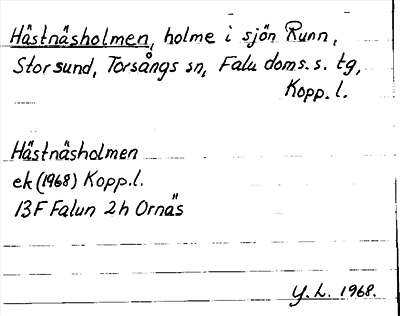 Hästnäsholmen, holme i sjön Runn,
Storsund, Torsångs sn, Falu doms.s. tg,
Kopp. l.
Hästnäsholmen
ek (1968) Kopp.l.
13F Falun 2h Ornäs
Y. L. 1968.